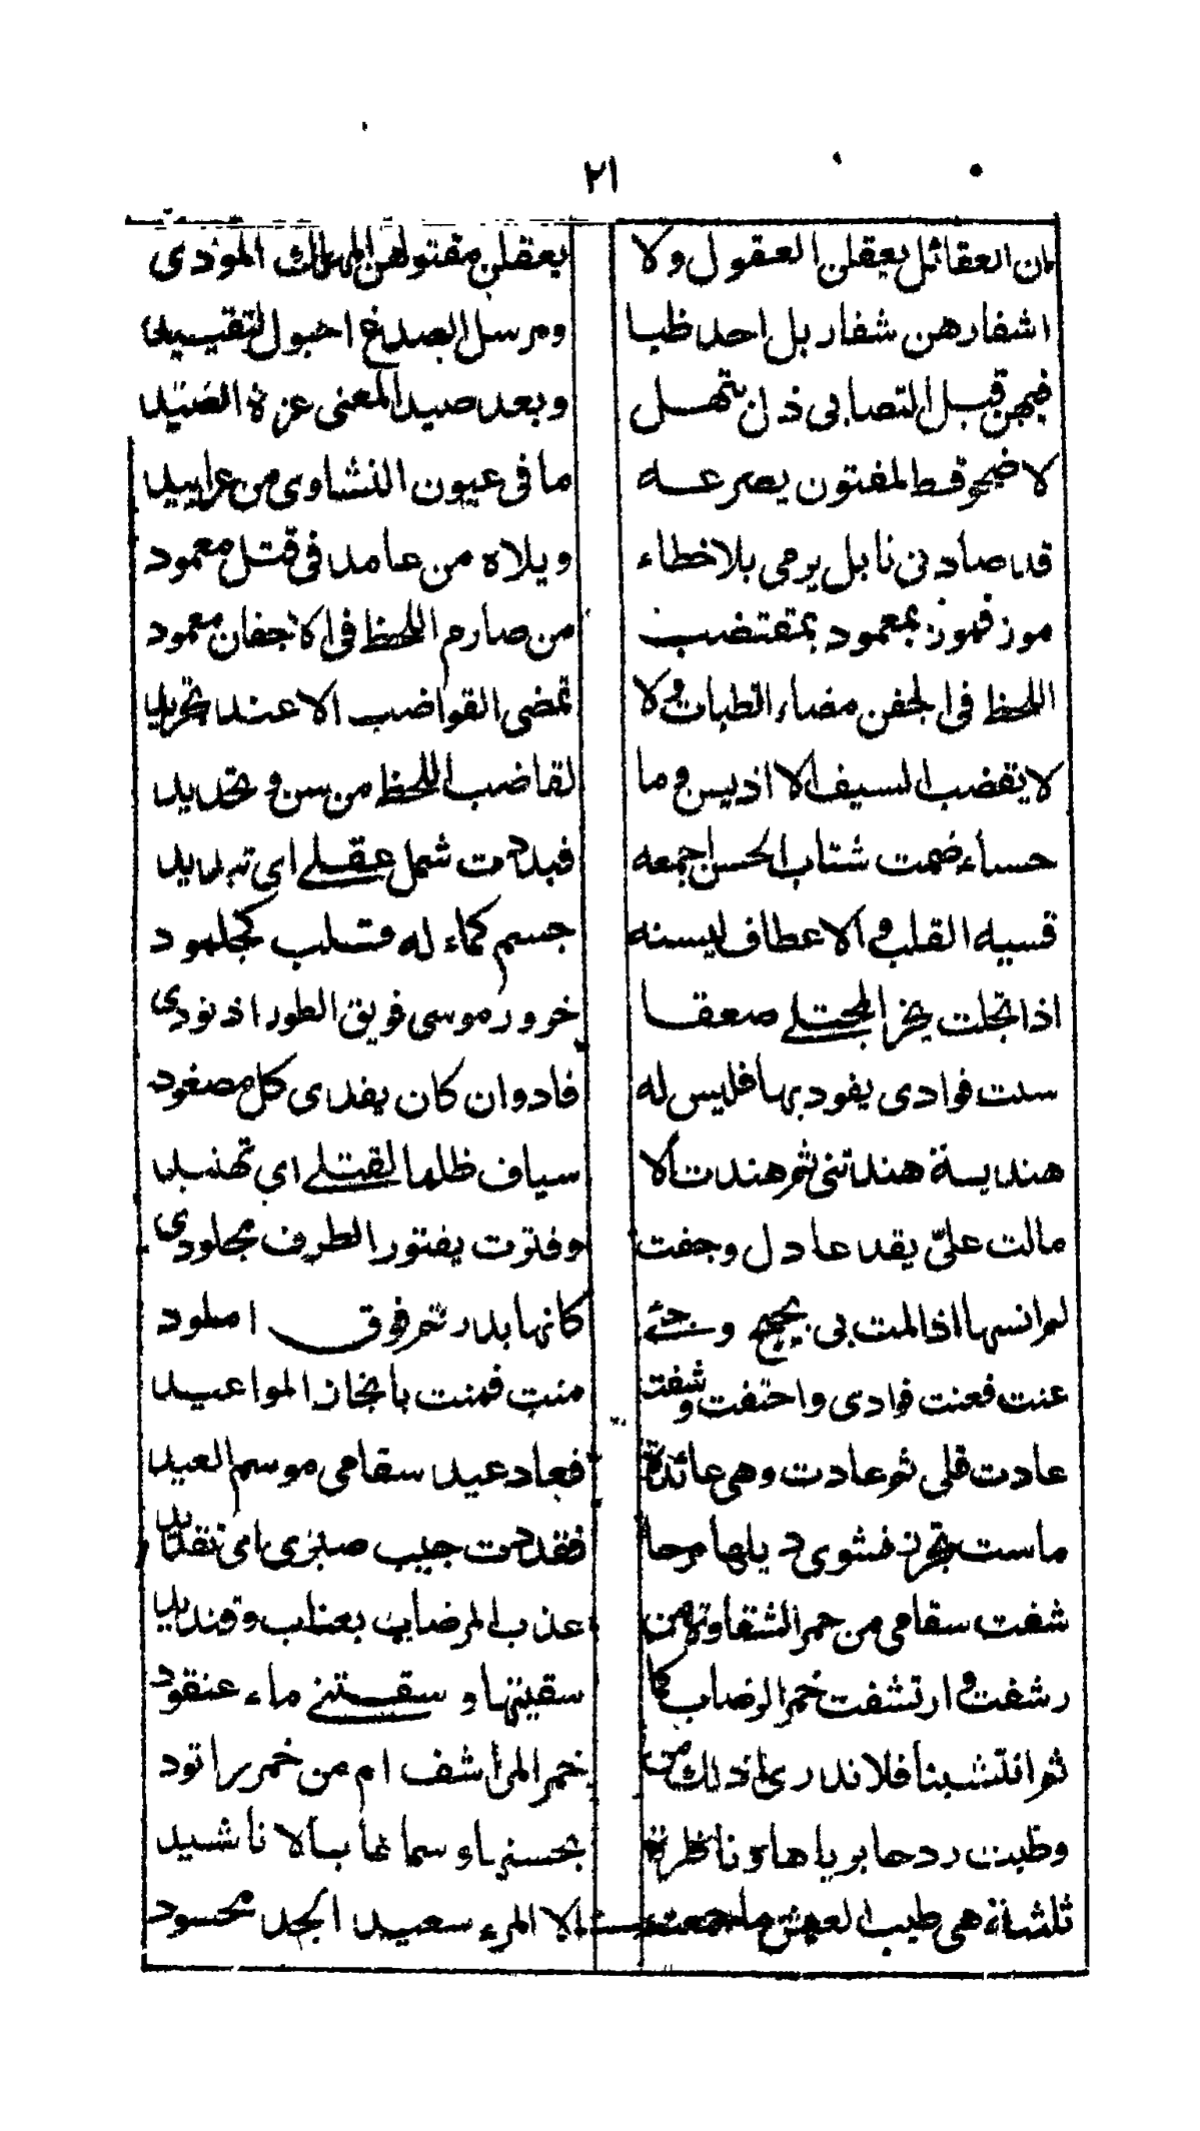 ٢١
ان العقائل يعقلن العقول ولا يعقلن مقتولهن الهالك المودى
اشفارهن شفار بل احد ظبا ومرسل الصدغ احبول لتقييد
قبل التصابى ذل وبعد صيد المعنى عزة الصيد
لا ضحو قط لمفتون يصرعه ما فى عيون النشاوى من عرابيد
قد صادنى نابل يرمى بلا خطاء ويلاه من عامد فى قتل معمود
بمعمود بمقتضب من صارم اللحظ فى الاجفان معمود
اللحظ فى الجفن مضاء الظبات ولا تمضى القواضب الا عند تجريد
لا يقضب السيف الا اذ يسن وما لقاضب اللحظ من سن وتحديد
حسناء ضمت شتات الحسن اجمعه فبددت شمل عقلى اى تبديد
قسيه القلب والاعطاف ليسنه جسم كماء له قلب كجلمود
اذا تجلت يخر المجتلى صعقا خرور موسى فويق الطور اذ نودى
سلت فوادى بفود بها فليس له فاد وان كان يفدى كل مصفود
هنديسة هندتنى ثم هندت الا سياف ظلما لقتلى اى تهنيد
مالت علىّ بقد عادل وجفت وفترت بفتور الطرف مجلودى
لم انسها اذ المت بى وجئى كانها بدر تم فوق املود
عنت فعنت فوادى واحتفت وشفت منت فمنت بانجاز المواعيد
عادت قلى ثم عادت وهى عائدة فعاد عيد سقامى موسم العيد
ماست نشوى ذيلها مرحا فقددت جيب صبرى اى تقديد
شفت سقامى من خمر الشفاه ومن عذب الرضاب بعناب وقنديد
رشفت وارتشفت خمر الرضاب كما سقيتها وسقتنى ماء عنقود
ثم انتشينا فلا ندرى اذلك من خمر المراشف ام من خمر راقود
وطبن ردحا برياها وناظرة بحسنها وسماعا بالاناشيد
ثلثة هى طيب العيش ما جمعت الا المرء سعيد الجد محسود